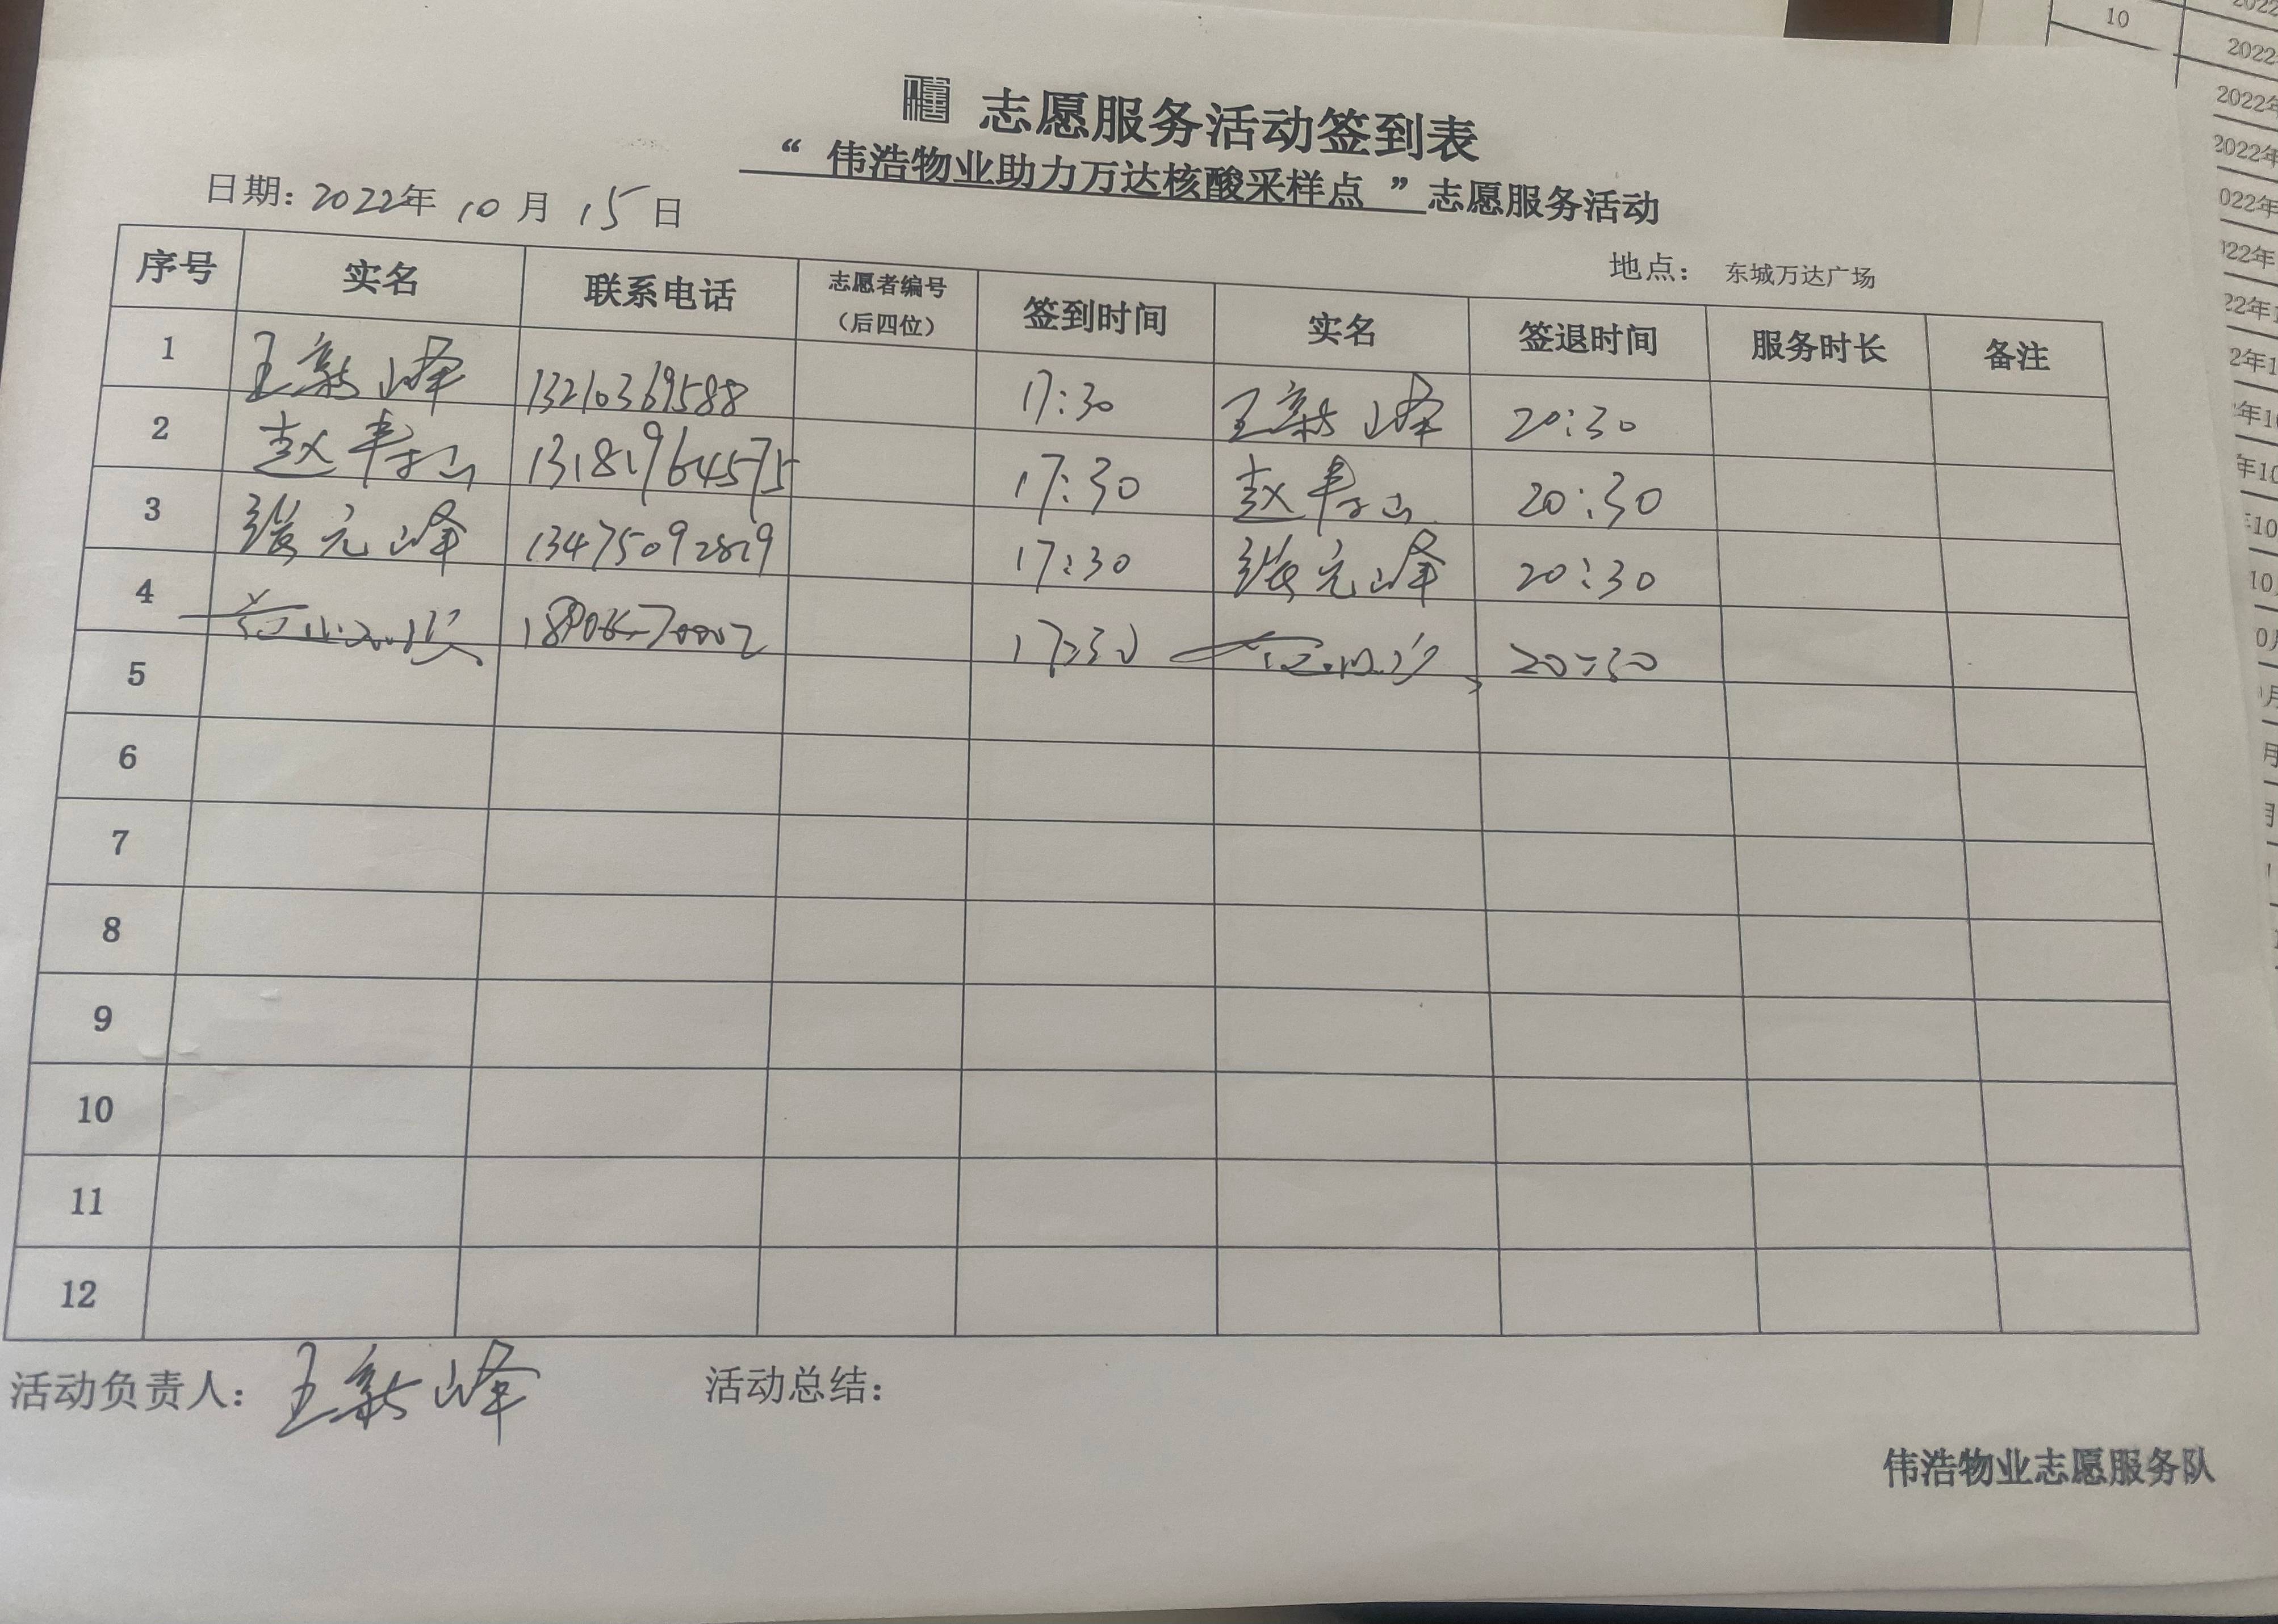 志愿服务活动签到表
“ 伟浩物业助力万达核酸采样点 ”志愿服务活动
日期: 2022年 10 月 15 日
地点： 东城万达广场
序号 实名 联系电话 志愿者编号（后四位） 签到时间 实名 签退时间 服务时长 备注
1 王新峰 13210369588 17:30 王新峰 20:30
2 赵 13181964575 17:30 赵 20:30
3 张元峰 13475092819 17:30 张元峰 20:30
4 17:30 20:30
5
6
7
8
9
10
11
12
活动负责人: 王新峰 活动总结:
伟浩物业志愿服务队
10 2022
2022
2022年
2022年
022年
22年
22年1
2年1
年10
年10
10
10